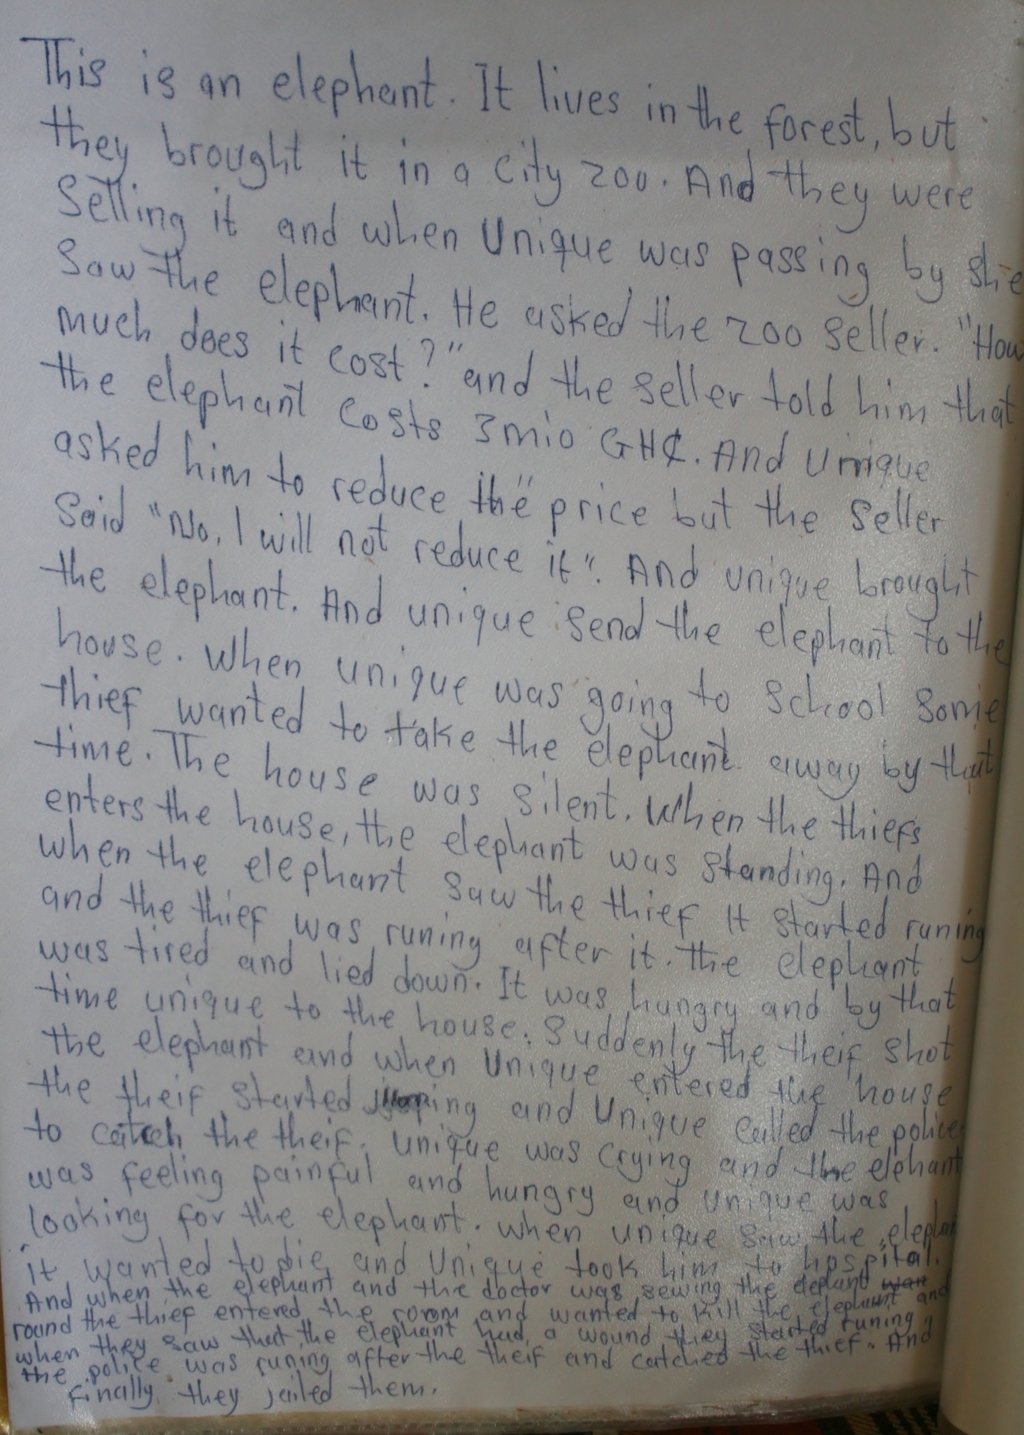 This is an elephant. It lives in the forest, but
they brought it in a city zoo. And they were
Selling it and when Unique was passing by she
Saw the elephant. He asked the zoo Seller. "How
much does it cost?" and the seller told him that
the elephant costs 3mio GH₵. And Unique
asked him to reduce the price but the Seller
Said "No, I will not reduce it". And unique brought
the elephant. And unique send the elephant to the
house. When unique was going to School Some
thief wanted to take the elephant away by that
time. The house was silent. When the thiefs
enters the house, the elephant was Standing. And
when the elephant saw the thief It started runing
and the thief was runing after it. The elephant
was tired and lied down. It was hungry and by that
time unique to the house. Suddenly the theif shot
the elephant and when Unique entered the house
the theif started and Unique called the police
to catch the theif. Unique was crying and the elehant
was feeling painful and hungry and unique was
looking for the elephant. when unique saw the
it wanted to die and Unique took him to hospital.
And when the elephant and the doctor was sewing the
round the thief entered the room and wanted to kill the elephant and
when they saw that the elephant had a wound they started runing,
the police was runing after the theif and catched the thief. And
Finally they jailed them.